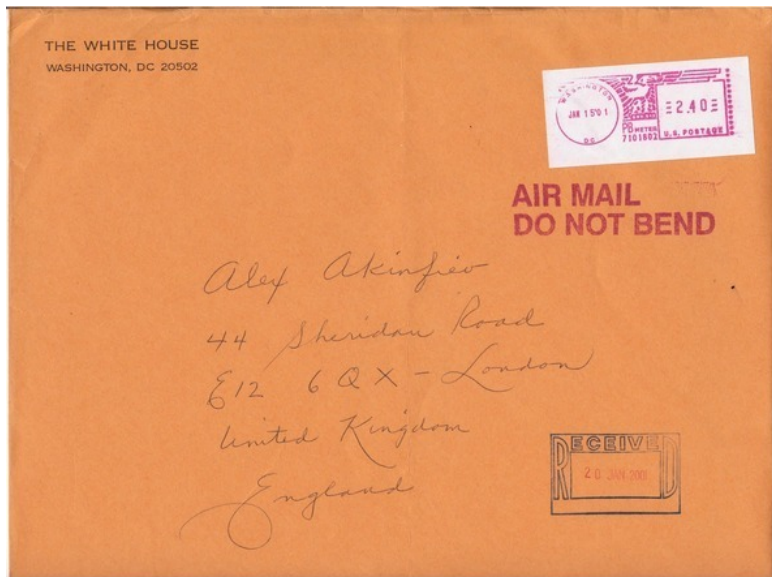 THE WHITE HOUSE
WASHINGTON, DC 20502
WASHINGTON
JAN 15'01
DC
PB METER
7101802
2.40
U.S. POSTAGE
AIR MAIL
DO NOT BEND
Alex Akinfiev
44 Sheridan Road
E12 6QX - London
United Kingdom
England
RECEIVED
20 JAN 2001